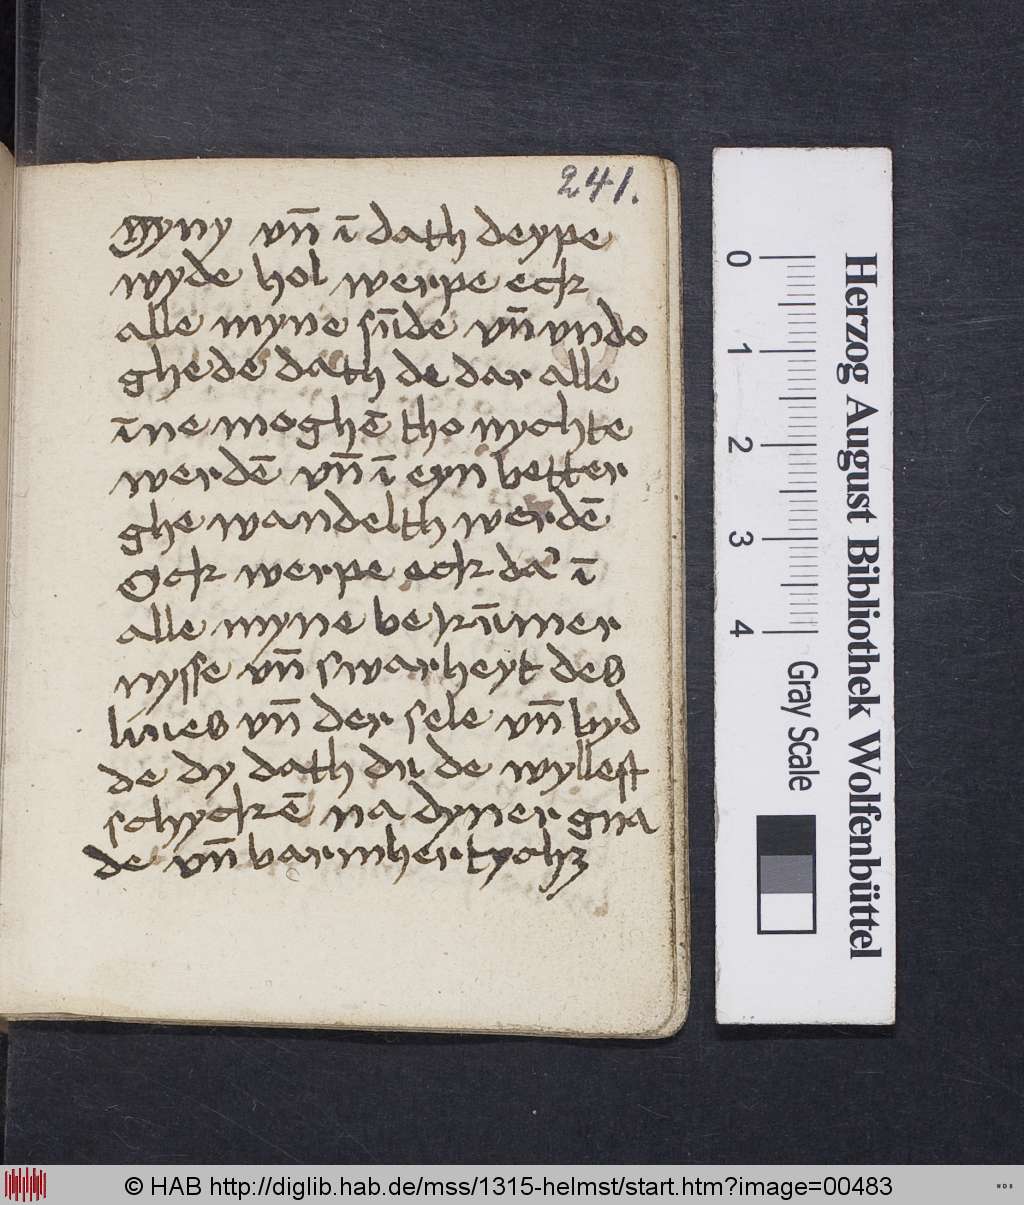 241.
wyny vn̄ ī dath deype
wyde hol werpe eck
alle myne sūde vn̄ vndo
ghede dath de dar alle
īne moghē tho nychte
werdē vn̄ ī eyn better
ghe wandelth werdē
Ock werpe eck da' ī
alle myne be kūmer
nysse vn̄ swarheyt des
liues vn̄ der sele vn̄ byd
de dy dath du de wyllest
schyckē na dyner gna
de vn̄ barmhertychʒ
Herzog August Bibliothek Wolfenbüttel
0 1 2 3 4
Gray Scale
© HAB http://diglib.hab.de/mss/1315-helmst/start.htm?image=00483